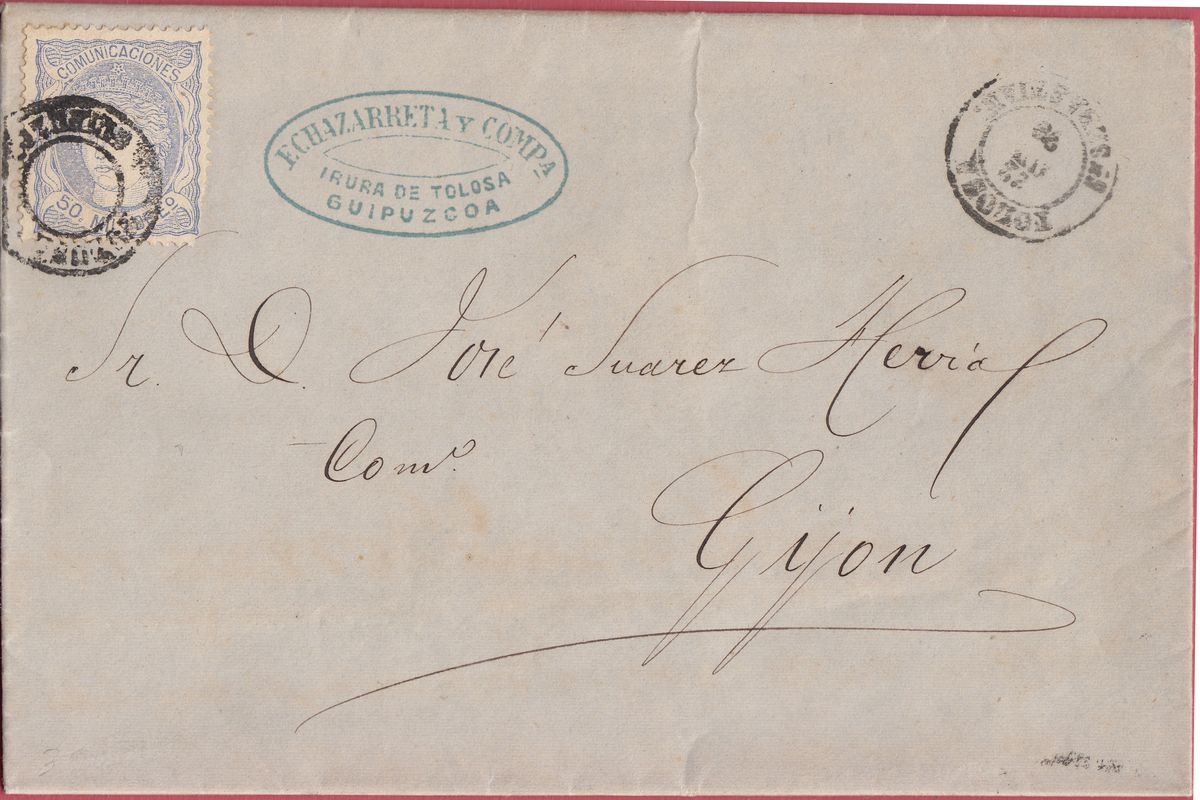 COMUNICACIONES
50 M
ECHAZARRETA Y COMPA
IRURA DE TOLOSA
GUIPUZCOA
TOLOSA
Sr. D. José Suarez Herria
Como.
Gijon
3